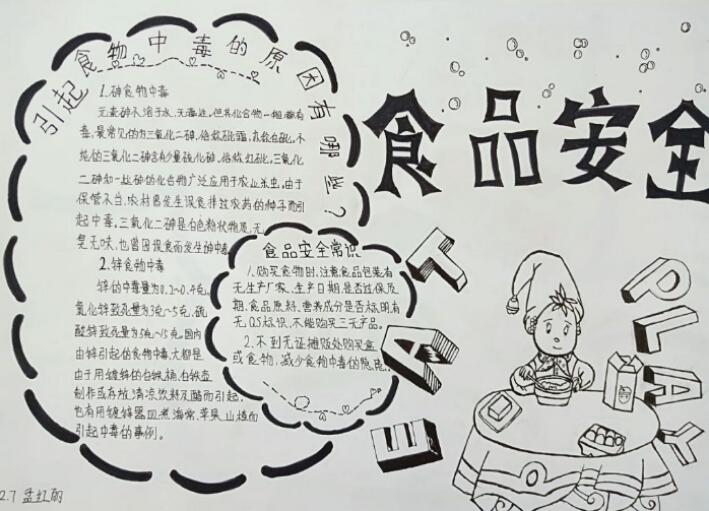 引起食物中毒的原因有哪些?
食品安全
1.砷食物中毒
元素砷不溶于水,无毒性,但其化合物一般都有
毒,最常见的为三氧化二砷,俗称砒霜,亦称白砒,不
纯的三氧化二砷含有少量硫化砷,俗称红砒,三氧化
二砷和一些砷的化合物广泛应用于农业杀虫,由于
保管不当,农村曾发生误食拌过农药的种子而引
起中毒,三氧化二砷是白色粉状物质,无
臭无味,也曾因误食而发生砷中毒
2.锌食物中毒
锌的中毒量为0.2~0.4克,
氧化锌致死量为3克~5克,硫
酸锌致死量为5克~15克,国内
由锌引起的食物中毒,大都是
由于用镀锌的白铁桶,白铁壶
制作或存放清凉饮料及醋而引起,
也有用镀锌器皿煮海棠,苹果,山楂而
引起中毒的事例。
食品安全常识
1.购买食物时,注意食品包装有
无生产厂家、生产日期,是否过保质
期,食品原料,营养成分是否标明有
无QS标识,不能购买三无产品。
2.不到无证摊贩处购买盒
或食物,减少食物中毒的隐患。
EAT
PLAY
2.7 孟红